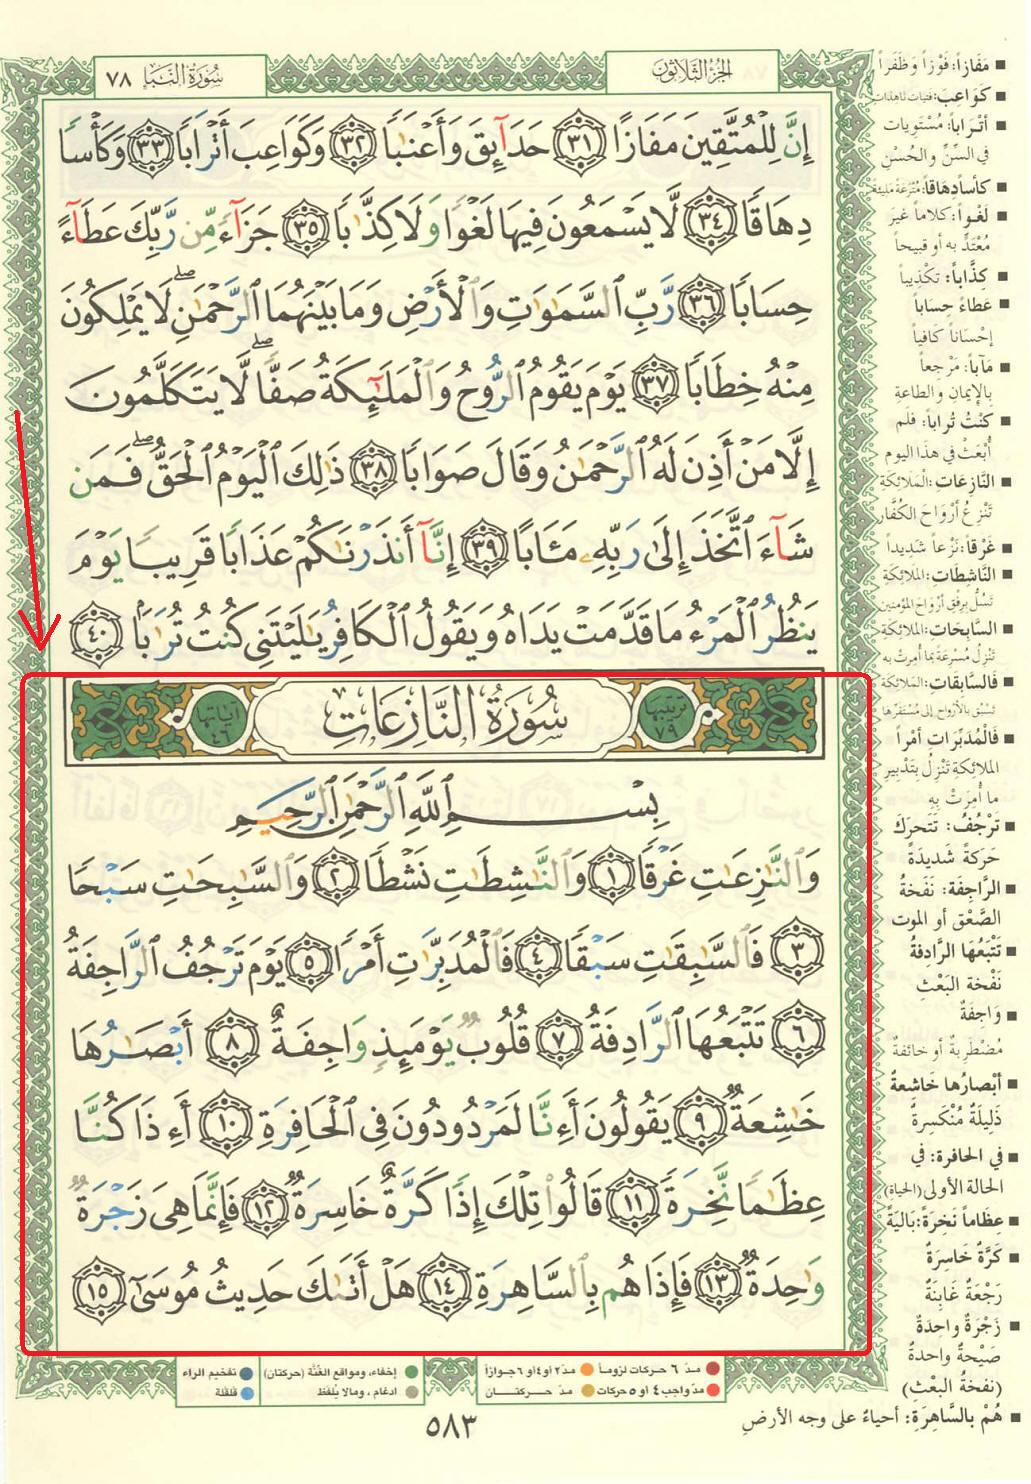 سُورَةُ النَّبَإِ ٧٨
الجُزْءُ الثَّلَاثُونَ
إِنَّ لِلْمُتَّقِينَ مَفَازًا ٣١ حَدَآئِقَ وَأَعْنَٰبًا ٣٢ وَكَوَاعِبَ أَتْرَابًا ٣٣ وَكَأْسًا
دِهَاقًا ٣٤ لَّا يَسْمَعُونَ فِيهَا لَغْوًا وَلَا كِذَّٰبًا ٣٥ جَزَآءً مِّن رَّبِّكَ عَطَآءً
حِسَابًا ٣٦ رَّبِّ ٱلسَّمَٰوَٰتِ وَٱلْأَرْضِ وَمَا بَيْنَهُمَا ٱلرَّحْمَٰنِ ۖ لَا يَمْلِكُونَ
مِنْهُ خِطَابًا ٣٧ يَوْمَ يَقُومُ ٱلرُّوحُ وَٱلْمَلَٰٓئِكَةُ صَفًّا ۖ لَّا يَتَكَلَّمُونَ
إِلَّا مَنْ أَذِنَ لَهُ ٱلرَّحْمَٰنُ وَقَالَ صَوَابًا ٣٨ ذَٰلِكَ ٱلْيَوْمُ ٱلْحَقُّ ۖ فَمَن
شَآءَ ٱتَّخَذَ إِلَىٰ رَبِّهِۦ مَـَٔابًا ٣٩ إِنَّآ أَنذَرْنَٰكُمْ عَذَابًا قَرِيبًا يَوْمَ
يَنظُرُ ٱلْمَرْءُ مَا قَدَّمَتْ يَدَاهُ وَيَقُولُ ٱلْكَافِرُ يَٰلَيْتَنِى كُنتُ تُرَٰبًۢا ٤٠
ترتيبها ٧٩
سُورَةُ النَّازِعَاتِ
آياتها ٤٦
بِسْمِ ٱللَّهِ ٱلرَّحْمَٰنِ ٱلرَّحِيمِ
وَٱلنَّٰزِعَٰتِ غَرْقًا ١ وَٱلنَّٰشِطَٰتِ نَشْطًا ٢ وَٱلسَّٰبِحَٰتِ سَبْحًا
٣ فَٱلسَّٰبِقَٰتِ سَبْقًا ٤ فَٱلْمُدَبِّرَٰتِ أَمْرًا ٥ يَوْمَ تَرْجُفُ ٱلرَّاجِفَةُ
٦ تَتْبَعُهَا ٱلرَّادِفَةُ ٧ قُلُوبٌ يَوْمَئِذٍ وَاجِفَةٌ ٨ أَبْصَٰرُهَا
خَٰشِعَةٌ ٩ يَقُولُونَ أَءِنَّا لَمَرْدُودُونَ فِى ٱلْحَافِرَةِ ١٠ أَءِذَا كُنَّا
عِظَٰمًا نَّخِرَةً ١١ قَالُوا۟ تِلْكَ إِذًا كَرَّةٌ خَاسِرَةٌ ١٢ فَإِنَّمَا هِىَ زَجْرَةٌ
وَٰحِدَةٌ ١٣ فَإِذَا هُم بِٱلسَّاهِرَةِ ١٤ هَلْ أَتَىٰكَ حَدِيثُ مُوسَىٰٓ ١٥
مَفَازاً: فَوْزاً وَظَفَراً
كَوَاعِبَ: فتيات ناهدات
أَتْرَاباً: مُسْتَوِيات
في السِّنِّ والحُسْنِ
كأساً دِهَاقاً: مُتْرَعَة مليئة
لَغْواً: كلاماً غير
مُعْتَدٍّ به أو قبيحاً
كِذَّاباً: تكْذيباً
عَطاءً حِساباً
إحْسَاناً كافياً
مَآباً: مَرْجعاً
بالإيمان والطاعةِ
كُنْتُ تُراباً: فلم
أُبْعَثْ في هذا اليوم
النَّازِعَاتِ: الملائكة
تَنْزِعُ أرْوَاحَ الكُفَّار
غَرْقاً: نَزْعاً شديداً
النَّاشِطَاتِ: الملائكة
تَسُلُّ بِرِفْقٍ أرْوَاحَ المؤمنين
السَّابِحَاتِ: الملائكة
تنْزِلُ مُسْرِعَةً بِمَا أُمِرَتْ به
فَالسَّابقاتِ: الملائكة
تسْبِقُ بالأرْواحِ إلى مُسْتَقَرِّها
فَالْمُدَبِّرَاتِ أَمْراً
الملائكة تنْزِلُ بِتَدْبيرِ
ما أُمِرَتْ بِهِ
تَرْجُفُ: تَتَحرَكُ
حَرَكَةً شَدِيدَةً
الرَّاجِفَة: نَفْخَةُ
الصَّعْقِ أو الموت
تَتْبَعُهَا الرَّادِفةُ
نَفْخَة البَعْثِ
وَاجِفَةٌ
مُضْطَرِبَةٌ أو خائفةٌ
أبْصَارُها خَاشِعةٌ
ذَلِيلَةٌ مُنْكَسِرةٌ
في الحافرة: في
الحالة الأولى (الحياة)
عِظَاماً نَخِرَةً: بَاليَةً
كَرَّةٌ خَاسِرَةٌ
رَجْعَةٌ غَابِنَةٌ
زَجْرَةٌ واحدَةٌ
صَيْحَةٌ واحدةٌ
(نفخةُ البعْثِ)
هُمْ بالسَّاهِرَةِ: أحياءٌ على وجه الأرضِ
مدّ ٦ حركات لزوماً مدّ ٢ أو ٤ أو ٦ جوازاً
مدّ واجب ٤ أو ٥ حركات مدّ حركتان
إخفاء، ومواقع الغُنَّة (حركتان)
ادغام، وما لا يُلفَظ
تفخيم الراء
قلقلة
٥٨٣